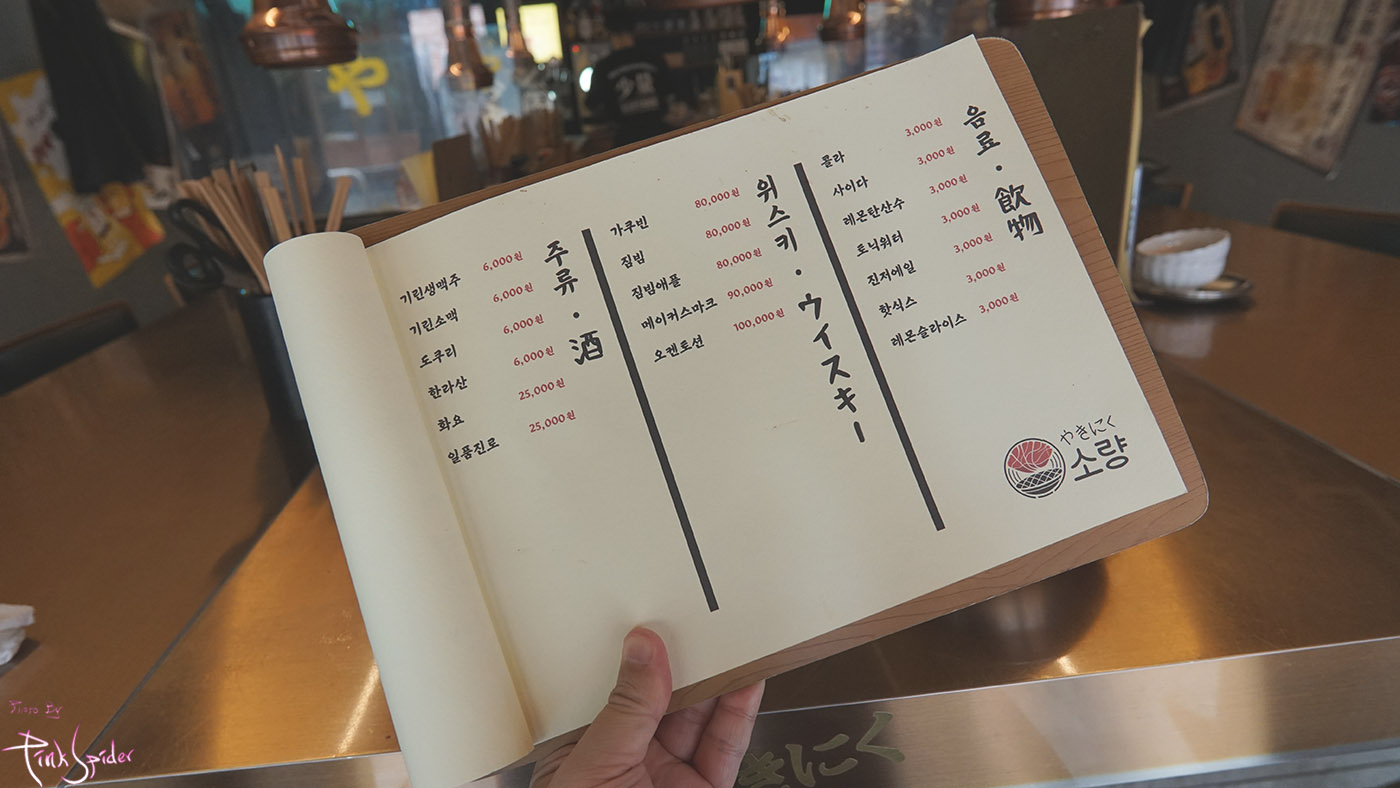 주류 · 酒
기린생맥주 6,000원
기린소맥 6,000원
도쿠리 6,000원
한라산 6,000원
화요 25,000원
일품진로 25,000원
위스키 · ウイスキー
가쿠빈 80,000원
짐빔 80,000원
짐빔애플 80,000원
메이커스마크 90,000원
오켄토션 100,000원
음료 · 飲物
콜라 3,000원
사이다 3,000원
레몬탄산수 3,000원
토닉워터 3,000원
진저에일 3,000원
핫식스 3,000원
레몬슬라이스 3,000원
やきにく
소량
や
少量
きにく
Photo By
PinkSpider